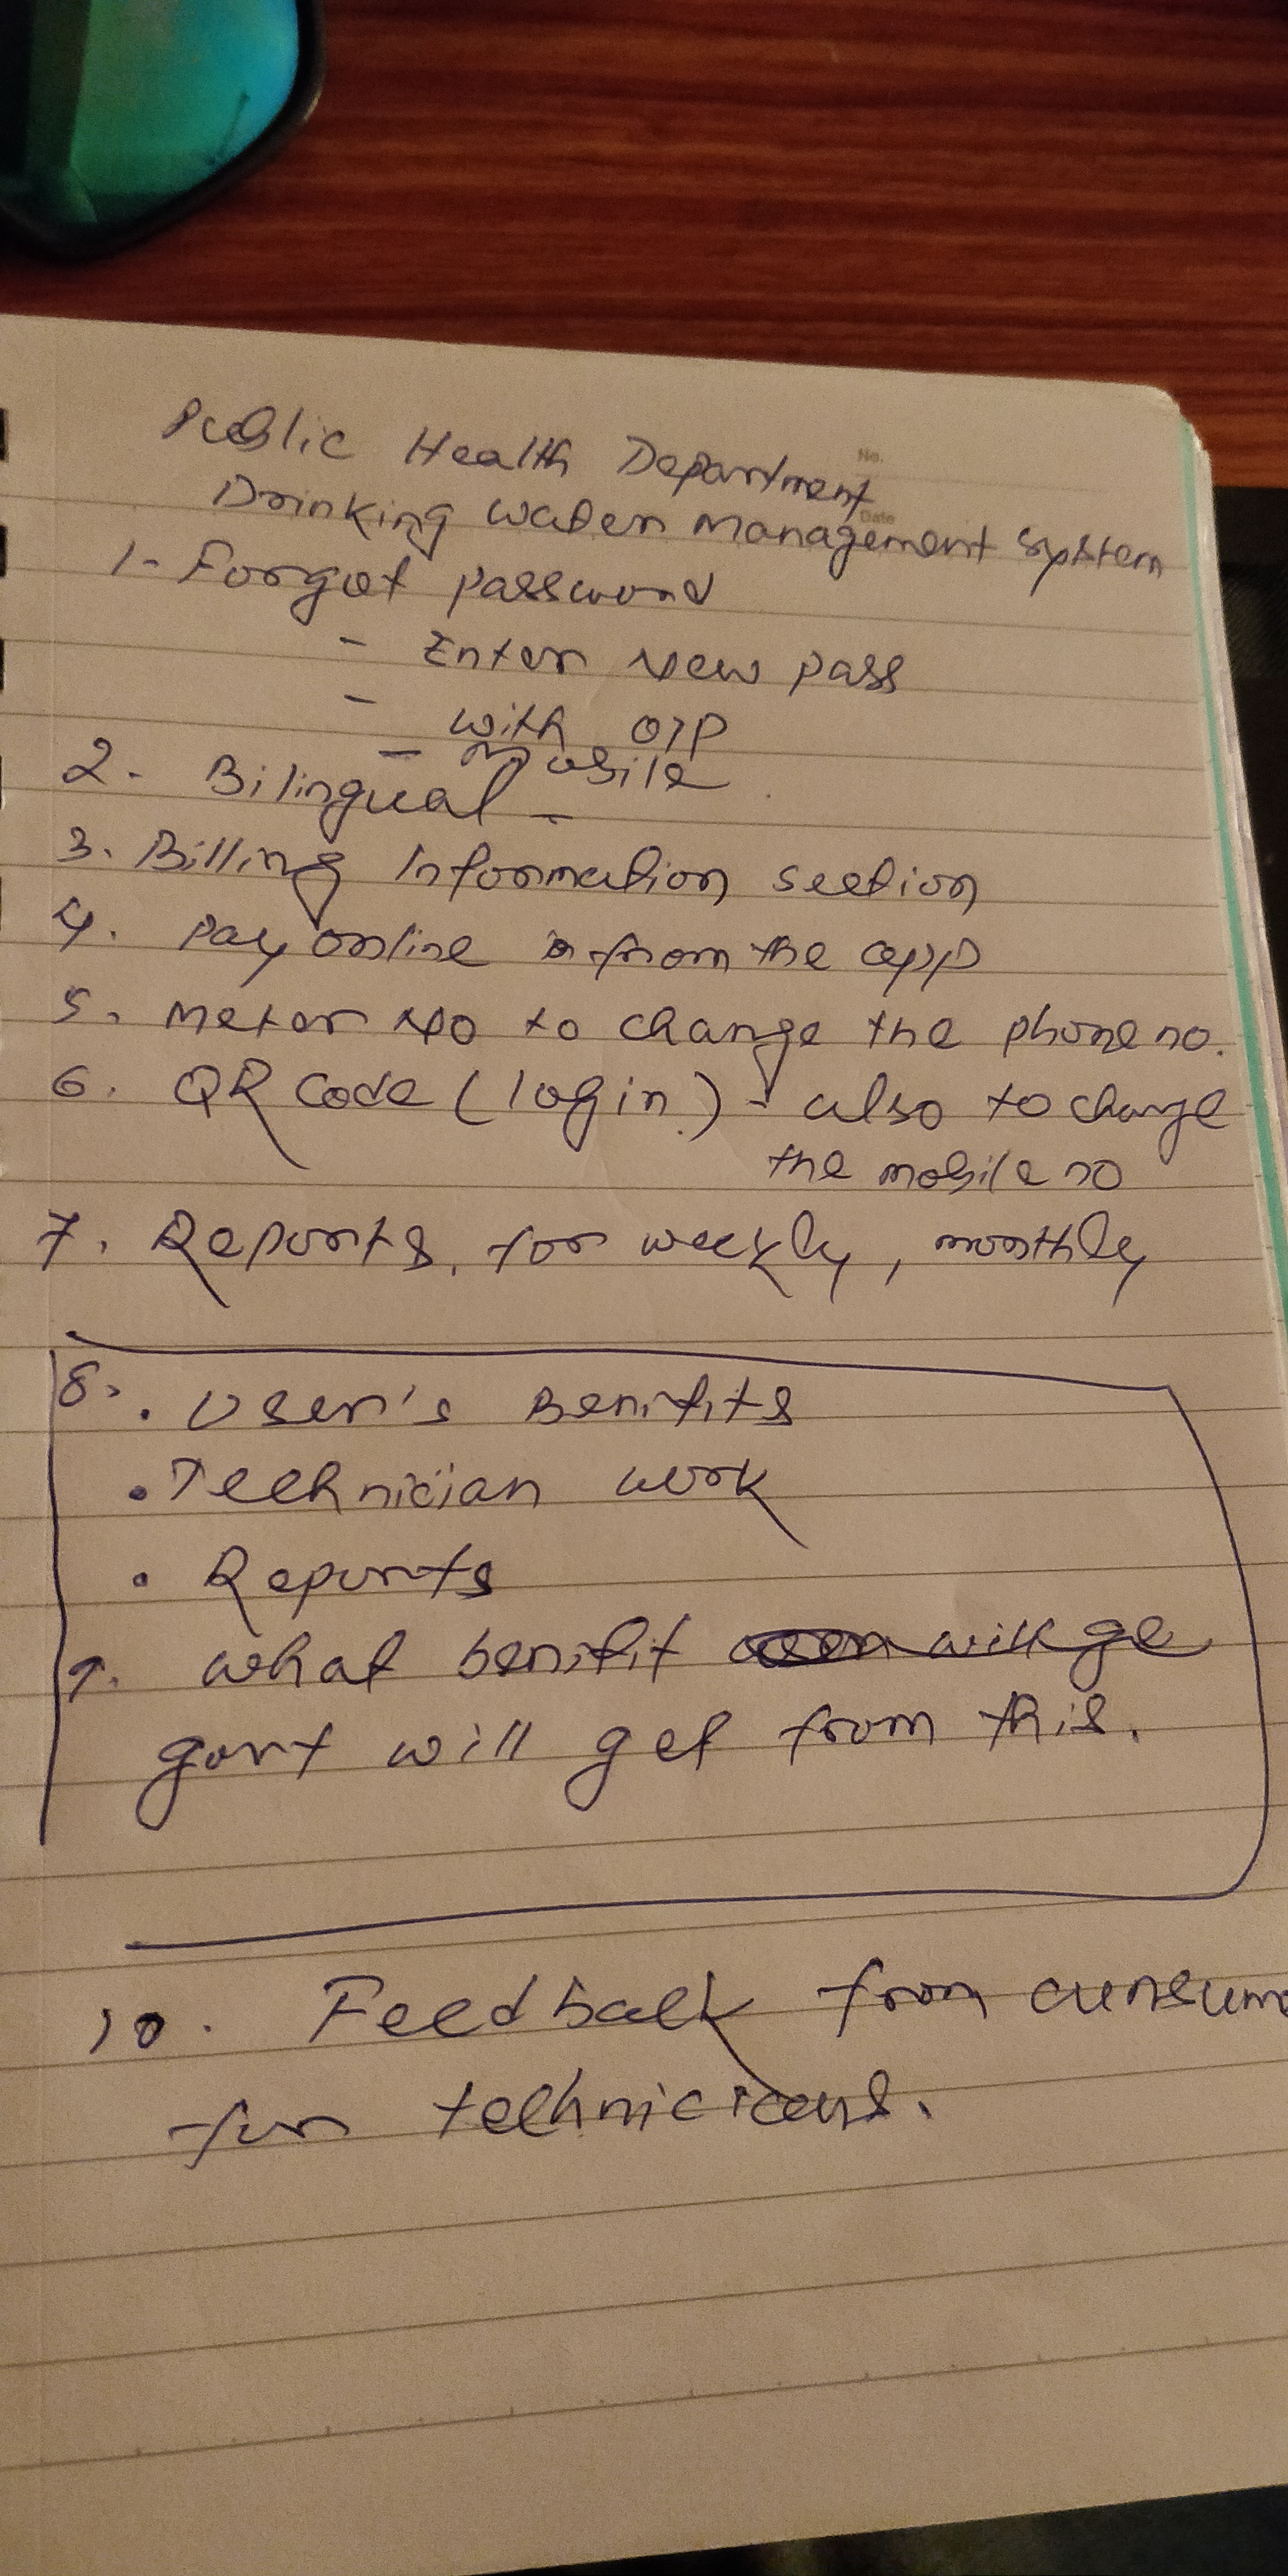 No.
Date
Public Health Department
Drinking Water Management System
1- Forgot password
- Enter New pass
- with OTP
- mobile
2. Bilingual -
3. Billing Information section
4. Pay online from the app
5. Meter No to change the phone no.
6. QR Code (login) - also to change
the mobile no
7. Reports, for weekly, monthly
8. • User's Benifits
• Technician work
• Reports
9. what benifit will ge
govt will get from this.
10. Feedback from consume
for technicians.